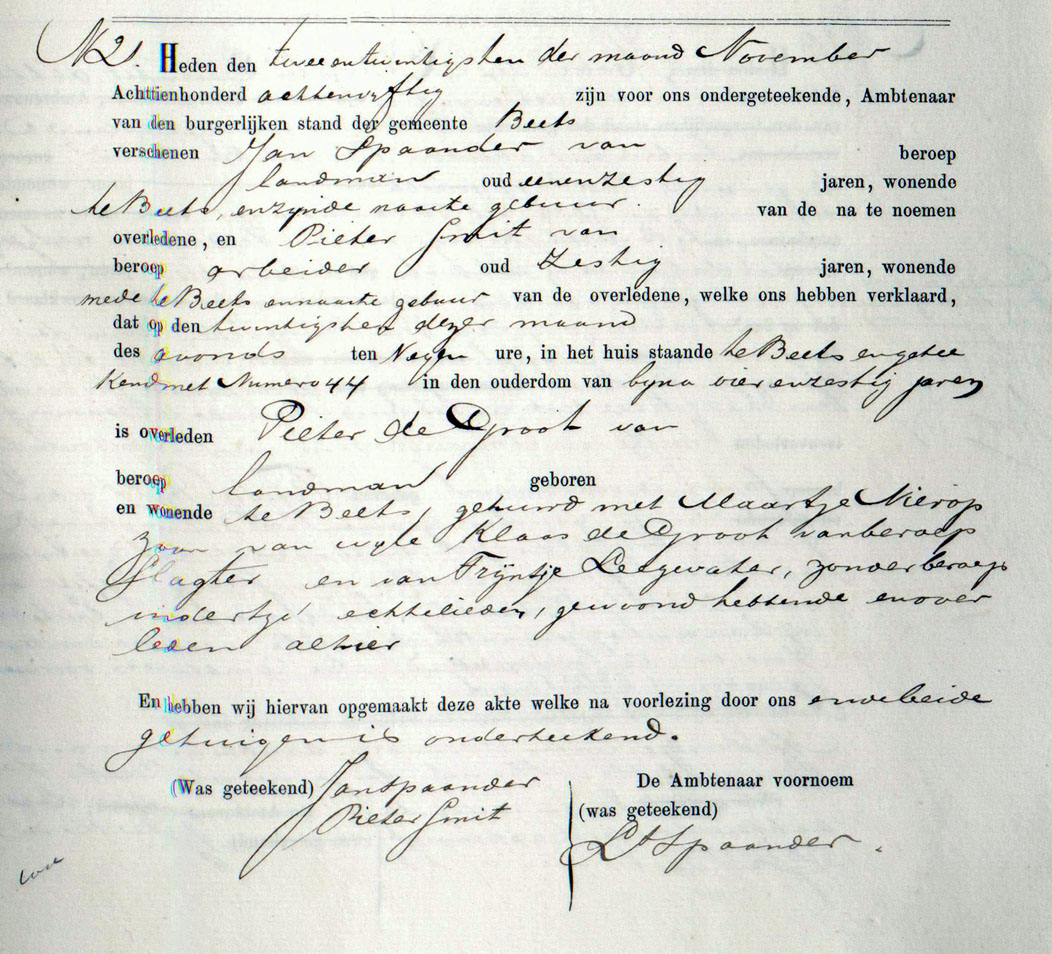 N 21. Heden den twee en twintigsten der maand November
Achttienhonderd achtenvyftig zijn voor ons ondergeteekende, Ambtenaar
van den burgerlijken stand der gemeente Beets
verschenen Jan Spaander van beroep
landman oud eenenzestig jaren, wonende
te Beets, en zynde naaste gebuur. van de na te noemen
overledene, en Pieter Smit van
beroep arbeider oud Zestig jaren, wonende
mede te Beets en naaste gebuur van de overledene, welke ons hebben verklaard,
dat op den twintigsten dezer maand
des avonds ten Negen ure, in het huis staande te Beets en getee
kend met Numero 44 in den ouderdom van byna vier en zestig jaren
is overleden Pieter de Groot van
beroep landman geboren
en wonende te Beets, gehuwd met Maartje Nierop
zoon van wyle Klaas de Groot van beroep
slagter en van Tryntje Leegwater, zonder beroep
indertyd echtelieden, gewoond hebbende en over
leden alhier
En hebben wij hiervan opgemaakt deze akte welke na voorlezing door ons en de beide
getuigen is onderteekend.
(Was geteekend) Jan Spaander
Pieter Smit
De Ambtenaar voornoem
(was geteekend)
Spaander.